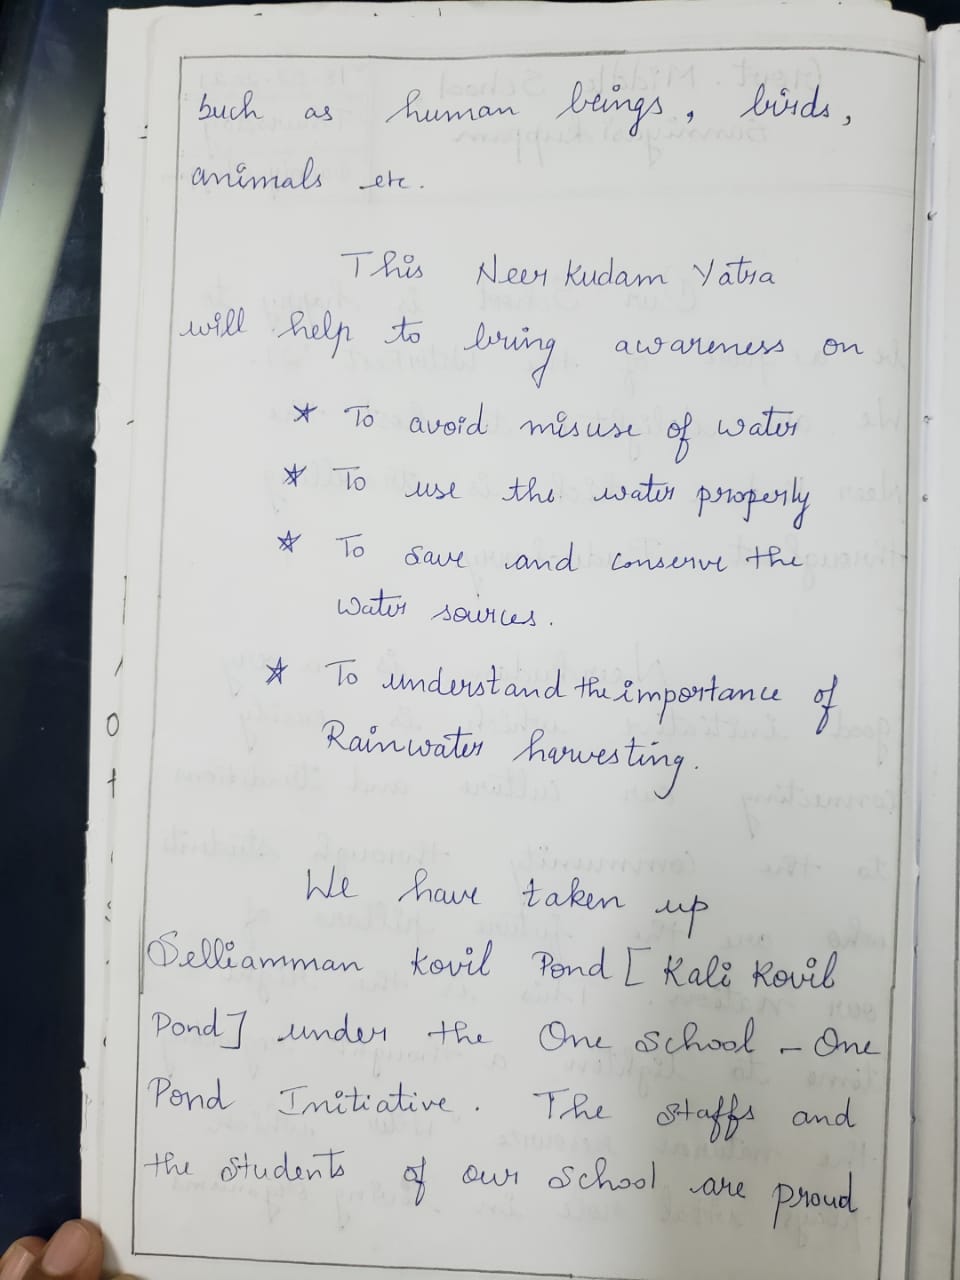 such as human beings, birds,
animals etc.
This Neer Kudam Yatra
will help to bring awareness on
* To avoid misuse of water
* To use the water properly
* To save and conserve the
water sources.
* To understand the importance of
Rainwater harvesting.
We have taken up
Selliamman Kovil Pond [Kali Kovil
Pond] under the One School - One
Pond Initiative. The staffs and
the students of our school are proud